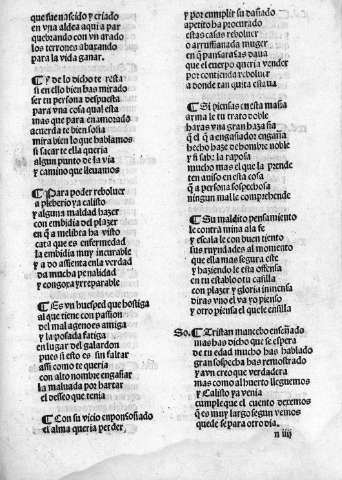 que fue nascido y criado
en vna aldea aqui a par
quebrando con vn arado
los terrones abaxando
para la vida ganar.
¶ Y de lo dicho te resta
si en ello bien has mirado
ser tu persona despuesta
para vna cosa qual esta
mas que para enamorado
acuerda te bien sosia
mira bien lo que hablamos
si sacar te ella queria
algun punto de la via
y camino que lleuamos
¶ Para poder reboluer
a pleberio ya calisto
y alguna maldad hazer
con embidia del plazer
en q̃ a melibea ha visto
cata que es enfermedad
la embidia muy incurable
y a do assienta en la verdad
da mucha penalidad
y congoxa yrreparable
¶ Es vn huesped que hostiga
al que tiene con passion
del mal ageno es amiga
y la posada fatiga
en lugar del galardon
pues si esto es sin faltar
assi como te queria
con alto nombre engañar
la maluada por hartar
el desseo que tenia
¶ Con su vicio enponsoñado
el alma queria perder
y por cumplir su dañado
apetito ha procurado
estas casas reboluer
o arrufianada muger
en q̃ pansarasas daua
que el cuerpo queria vender
por contienda reboluer
a donde tan quita estaua
¶ Si piensas en esta massa
arma le tu trato doble
haras vna gran hazaña
q̃ el q̃ a engañador engaña
hecho haze de hombre noble
y si sab: la raposa
mucho mas el que la prende
ten auiso en esta cosa
q̃ a persona sospechosa
ningun mal le comprehende
¶ Su maldito pensamiento
le contra mina a la fe
y escala le con buen tiento
sus ruyndades al momento
que ella mas segura este
y haziendo le esta offensa
en tu establo o tu casilla
con plazer y gloria inmensa
diras vno el va yo pienso
y otro piensa el que ensilla
So. ¶ Tristan mancebo enseñado
mas has dicho que se espera
de tu edad mucho has hablado
gran sospecha has remostrado
y avn creo que verdadera
mas como al huerto lleguemos
y Calisto ya venia
cumple que el cuento dexemos
q̃ es muy largo segun vemos
quede se para otro dia.
n iiij